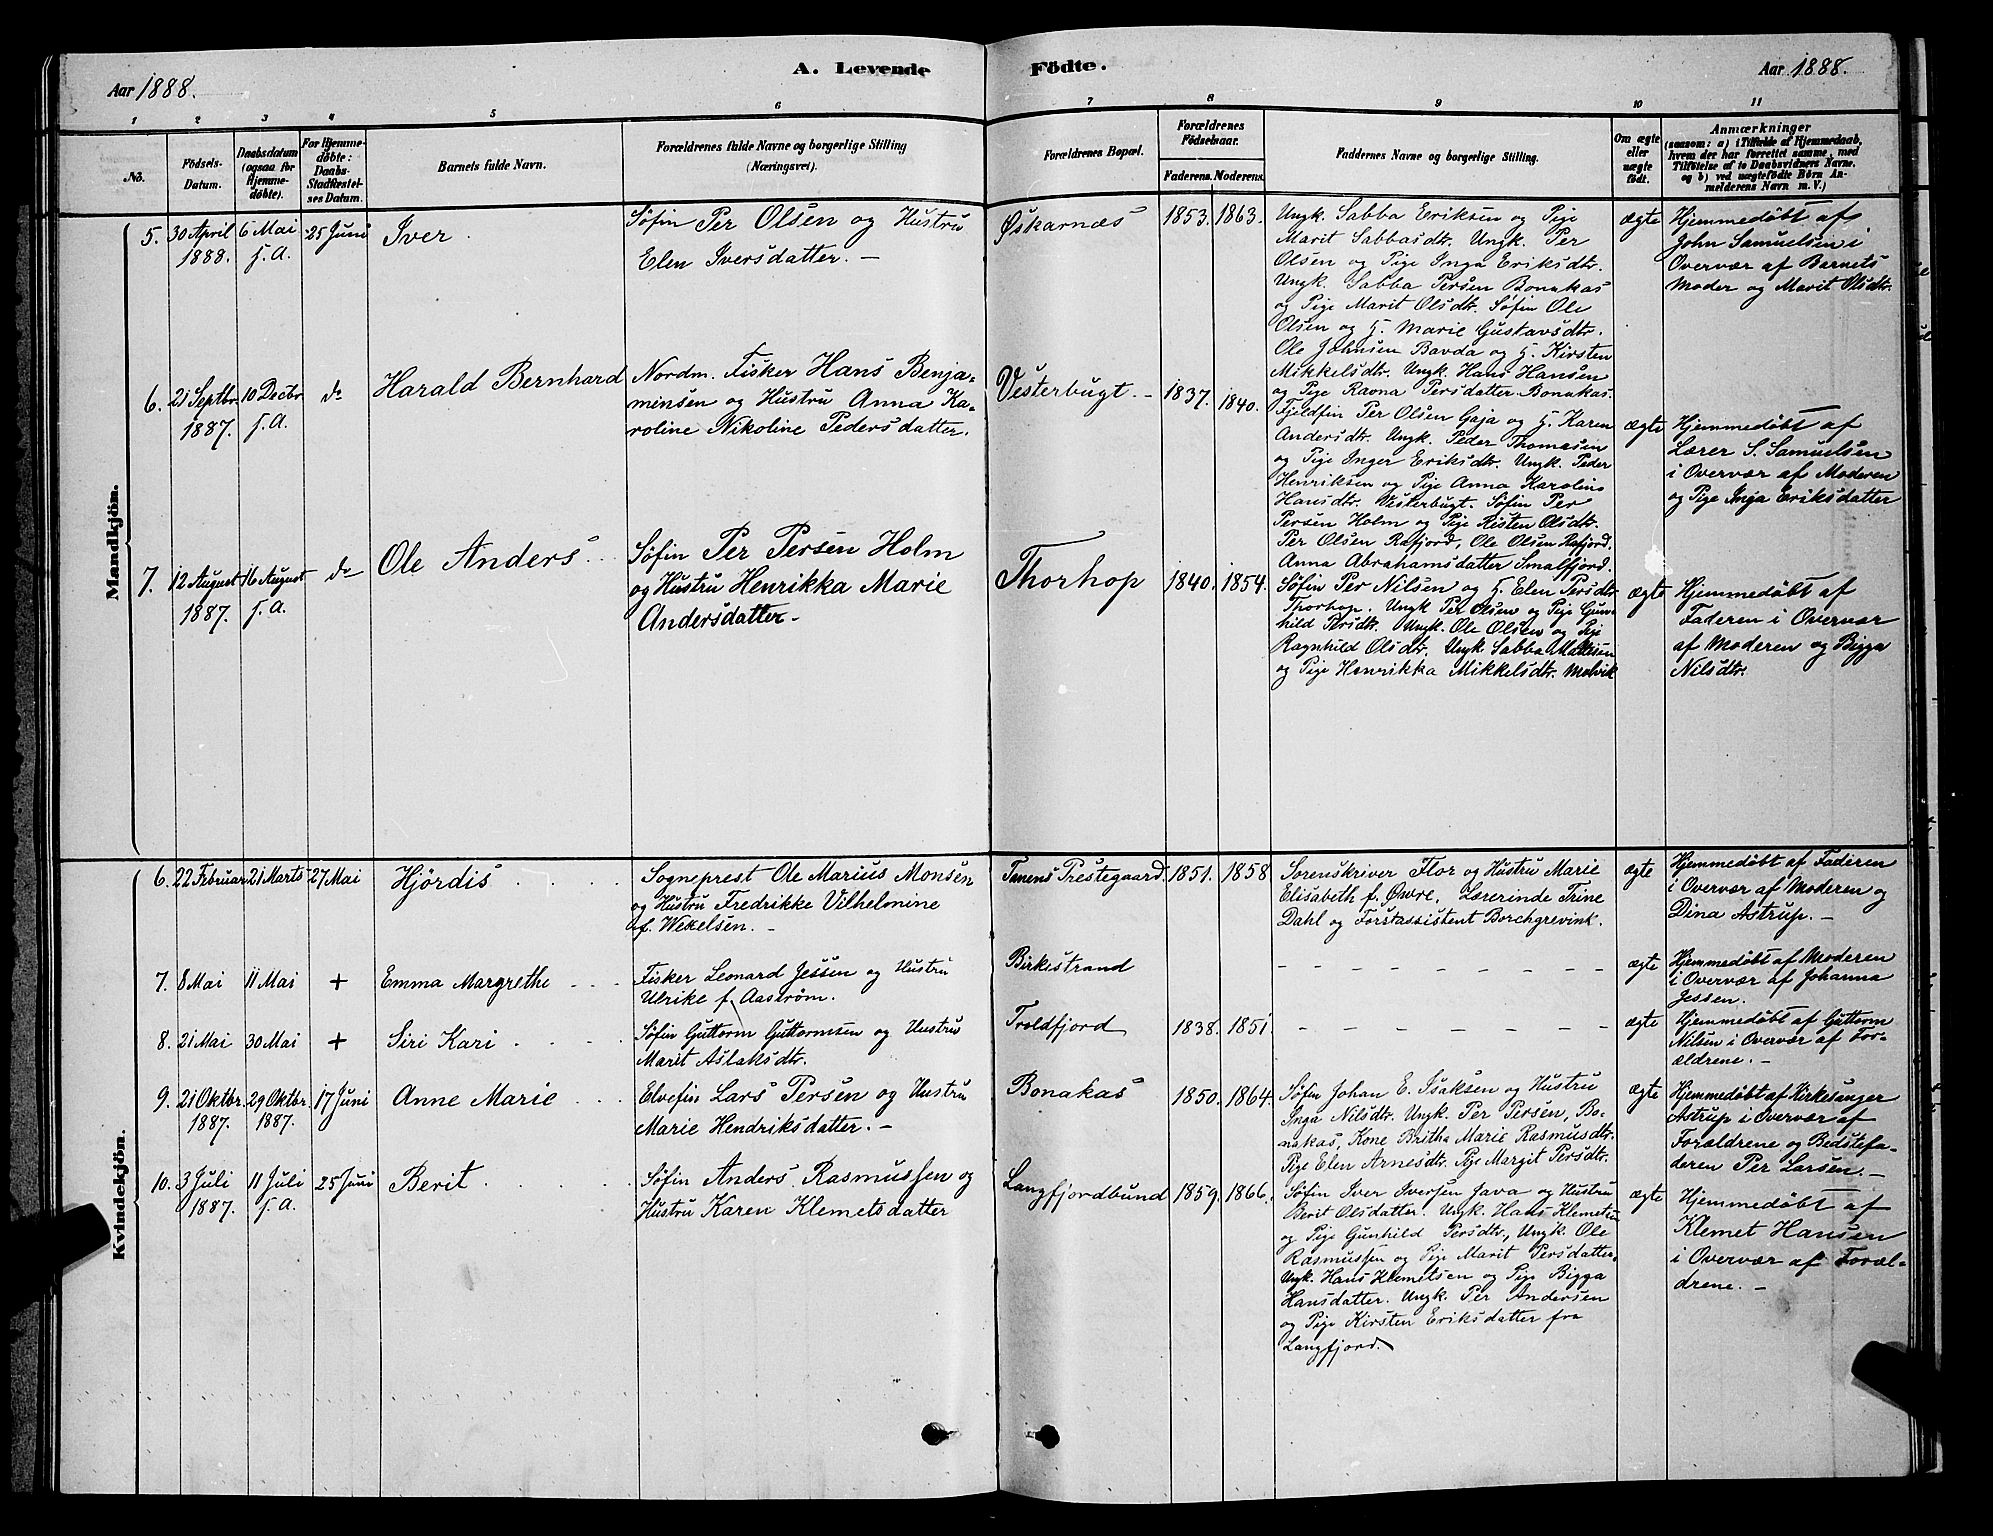 Aar 1888.
A. Levende
Födte.
Aar 1888.
1
2
3
4
5
6
7
8
9
10
11
No.
Födsels-
Datum.
Daabsdatum
(ogsaa for
Hjemme-
döbte).
For Hjemme-
døbte:
Daabs-
Stadfæstel-
ses Datum.
Barnets fulde Navn.
Forældrenes fulde Navne og borgerlige Stilling
(Næringsvei).
Forældrenes Bopæl.
Forældrenes
Födselsaar.
Faderens. Moderens.
Faddernes Navne og borgerlige Stilling.
Om ægte
eller
uægte
födt.
Anmærkninger
(saasom: a) i Tilfælde af Hjemmedaab,
hvem der har forrettet samme, med
Tilföielse af to Daabsvidners Navne,
og b) ved uægtefödte Börn An-
melderens Navn m. V.)
Mandkjön.
5. 30 April
1888.
6 Mai
s. A.
25 Juni
Iver
Søfin Per Olsen og Hustru
Elen Iversdatter. —
Øskarnæs
1853. 1863.
Ungk. Sabba Eriksen og Pige
Marit Sabbasdtr. Ungk. Per
Olsen og Pige Inga Eriksdtr.
Ungk. Sabba Persen Bonakas
og Pige Marit Olsdtr. Søfin Ole
Olsen og H. Marie Gustavsdtr.
Ole Johnsen Bavda og H. Kirsten
Mikkelsdtr. Ungk. Hans Hansen
og Pige Ravna Persdatter Bonakas.
ægte
Hjemmedøbt af
John Samuelsen i
Overvær af Barnets
Moder og Marit Olsdtr.
6. 21 Septbr
1887.
10 Decbr
s. A.
do
Harald Bernhard
Nordm. Fisker Hans Benja-
minsen og Hustru Anna Ka-
roline Nikoline Pedersdatter.
Vesterbugt. -
1837. 1840.
Fjeldfin Per Olsen Gaja og H. Karen
Andersdtr. Ungk. Peder Thomasen
og Pige Inger Eriksdtr. Ungk. Peder
Henriksen og Pige Anna Karoline
Hansdtr. Vesterbugt. Søfin Per
Persen Holm og Pige Risten Olsdtr.
Per Olsen Rafjord, Ole Olsen Rafjord.
Anna Abrahamsdatter Smalfjord.
ægte
Hjemmedøbt af
Lærer S. Samuelsen
i Overvær af Moderen
og Pige Inga Eriksdatter
7. 12 August
1887.
16 August
s. A.
do
Ole Anders
Søfin Per Persen Holm
og Hustru Henrikka Marie
Andersdatter -
Thorhop
1840. 1854.
Søfin Per Nilsen og H. Elen Persdtr.
Thorhop. Ungk Per Olsen og Pige Gun-
hild Persdtr. Ungk. Ole Olsen og Pige
Ragnhild Olsdtr. Ungk Sabba Mathisen
og Pige Henrikka Mikkelsdtr. Molvik
ægte
Hjemmedøbt af
Faderen i Overvær
af Moderen og Bigga
Nilsdtr.
Kvindekjön.
6. 22 Februar
21 Marts
27 Mai
Hjördis
Sogneprest Ole Marius Monsen
og Hustru Fredrikke Vilhelmine
f. Wekelsen. -
Tanens Prestegaard.
1851. 1858
Sorenskriver Flor og Hustru Marie
Elisabeth f. Øwre. Lærerinde Trine
Dahl og Forstassistent Borchgrevink.
ægte
Hjemmedøbt af Faderen
i Overvær af Moderen og
Dina Astrup. -
7. 8 Mai
11 Mai
+
Emma Margrethe
Fisker Leonard Jessen og Hustru
Ulrike f. Aaström.
Birkestrand
ægte
Hjemmedøbt af Moderen
i Overvær af Johanna
Jessen.
8. 21 Mai
30 Mai
+
Siri Kari
Søfin Guttorm Guttormsen og Hustru
Marit Aslaksdtr.
Troldfjord
1838. 1851
ægte
Hjemmedøbt af Guttorm
Nilsen i Overvær af For-
ældrene. -
9. 21 Oktbr.
1887.
29 Oktbr
1887.
17 Juni
Anne Marie
Elvefin Lars Persen og Hustru
Marie Hendriksdatter. -
Bonakas
1850. 1864.
Søfin Johan E. Isaksen og Hustru
Inga Nilsdtr. Ungk. Per Persen, Bo-
nakas, Kone Britha Marie Rasmusdtr.
Pige Elen Arnesdtr. Pige Margit Persdtr.
ægte
Hjemmedøbt af Kirkesanger
Astrup i Overvær af
Forældrene og Bedstefa-
deren Per Larsen. -
10. 3 Juli
1887.
11 Juli
s. A.
25 Juni
Berit
Søfin Anders Rasmussen og
Hustru Karen Klemetsdatter
Langfjordbund
1859. 1866.
Søfin Iver Iversen Java og Hustru
Berit Olsdatter. Ungk. Hans Klemetsen
og Pige Gunhild Persdtr., Ungk. Ole
Rasmussen og Pige Marit Persdatter.
Ungk. Hans Klemetsen og Pige Bigga
Hansdatter. Ungk. Per Andersen
og Pige Kirsten Eriksdatter fra
Langfjord.
ægte
Hjemmedøbt af
Klemet Hansen
i Overvær af Foræl-
drene. -